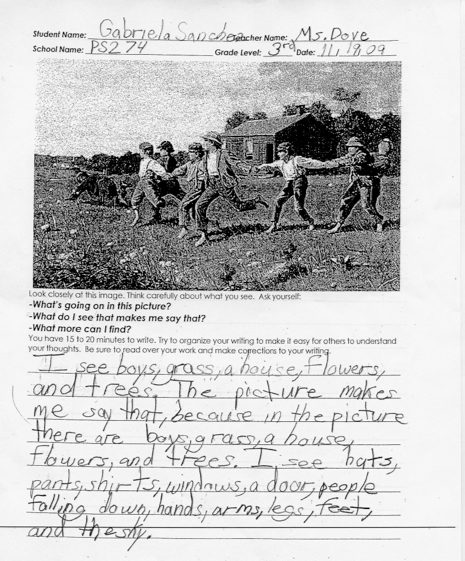 Student Name: Gabriela Sanchez Teacher Name: Ms. Dove
School Name: PS274 Grade Level: 3rd Date: 11,18,09
Look closely at this image. Think carefully about what you see. Ask yourself:
-What's going on in this picture?
-What do I see that makes me say that?
-What more can I find?
You have 15 to 20 minutes to write. Try to organize your writing to make it easy for others to understand
your thoughts. Be sure to read over your work and make corrections to your writing.
I see boys, grass, a house, flowers,
and trees. The picture makes
me say that, because in the picture
there are boys, grass, a house,
flowers, and trees. I see hats,
pants, shirts, windows, a door, people
falling down, hands, arms, legs, feet,
and the sky.